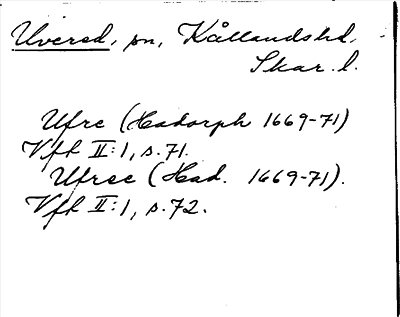 Uvered, sn, Kållandshd.
Skar. l.
Ufre (Hadorph 1669-71)
Vfl II:1, s. 71.
Ufree (Had. 1669-71).
Vfl II:1, s. 72.